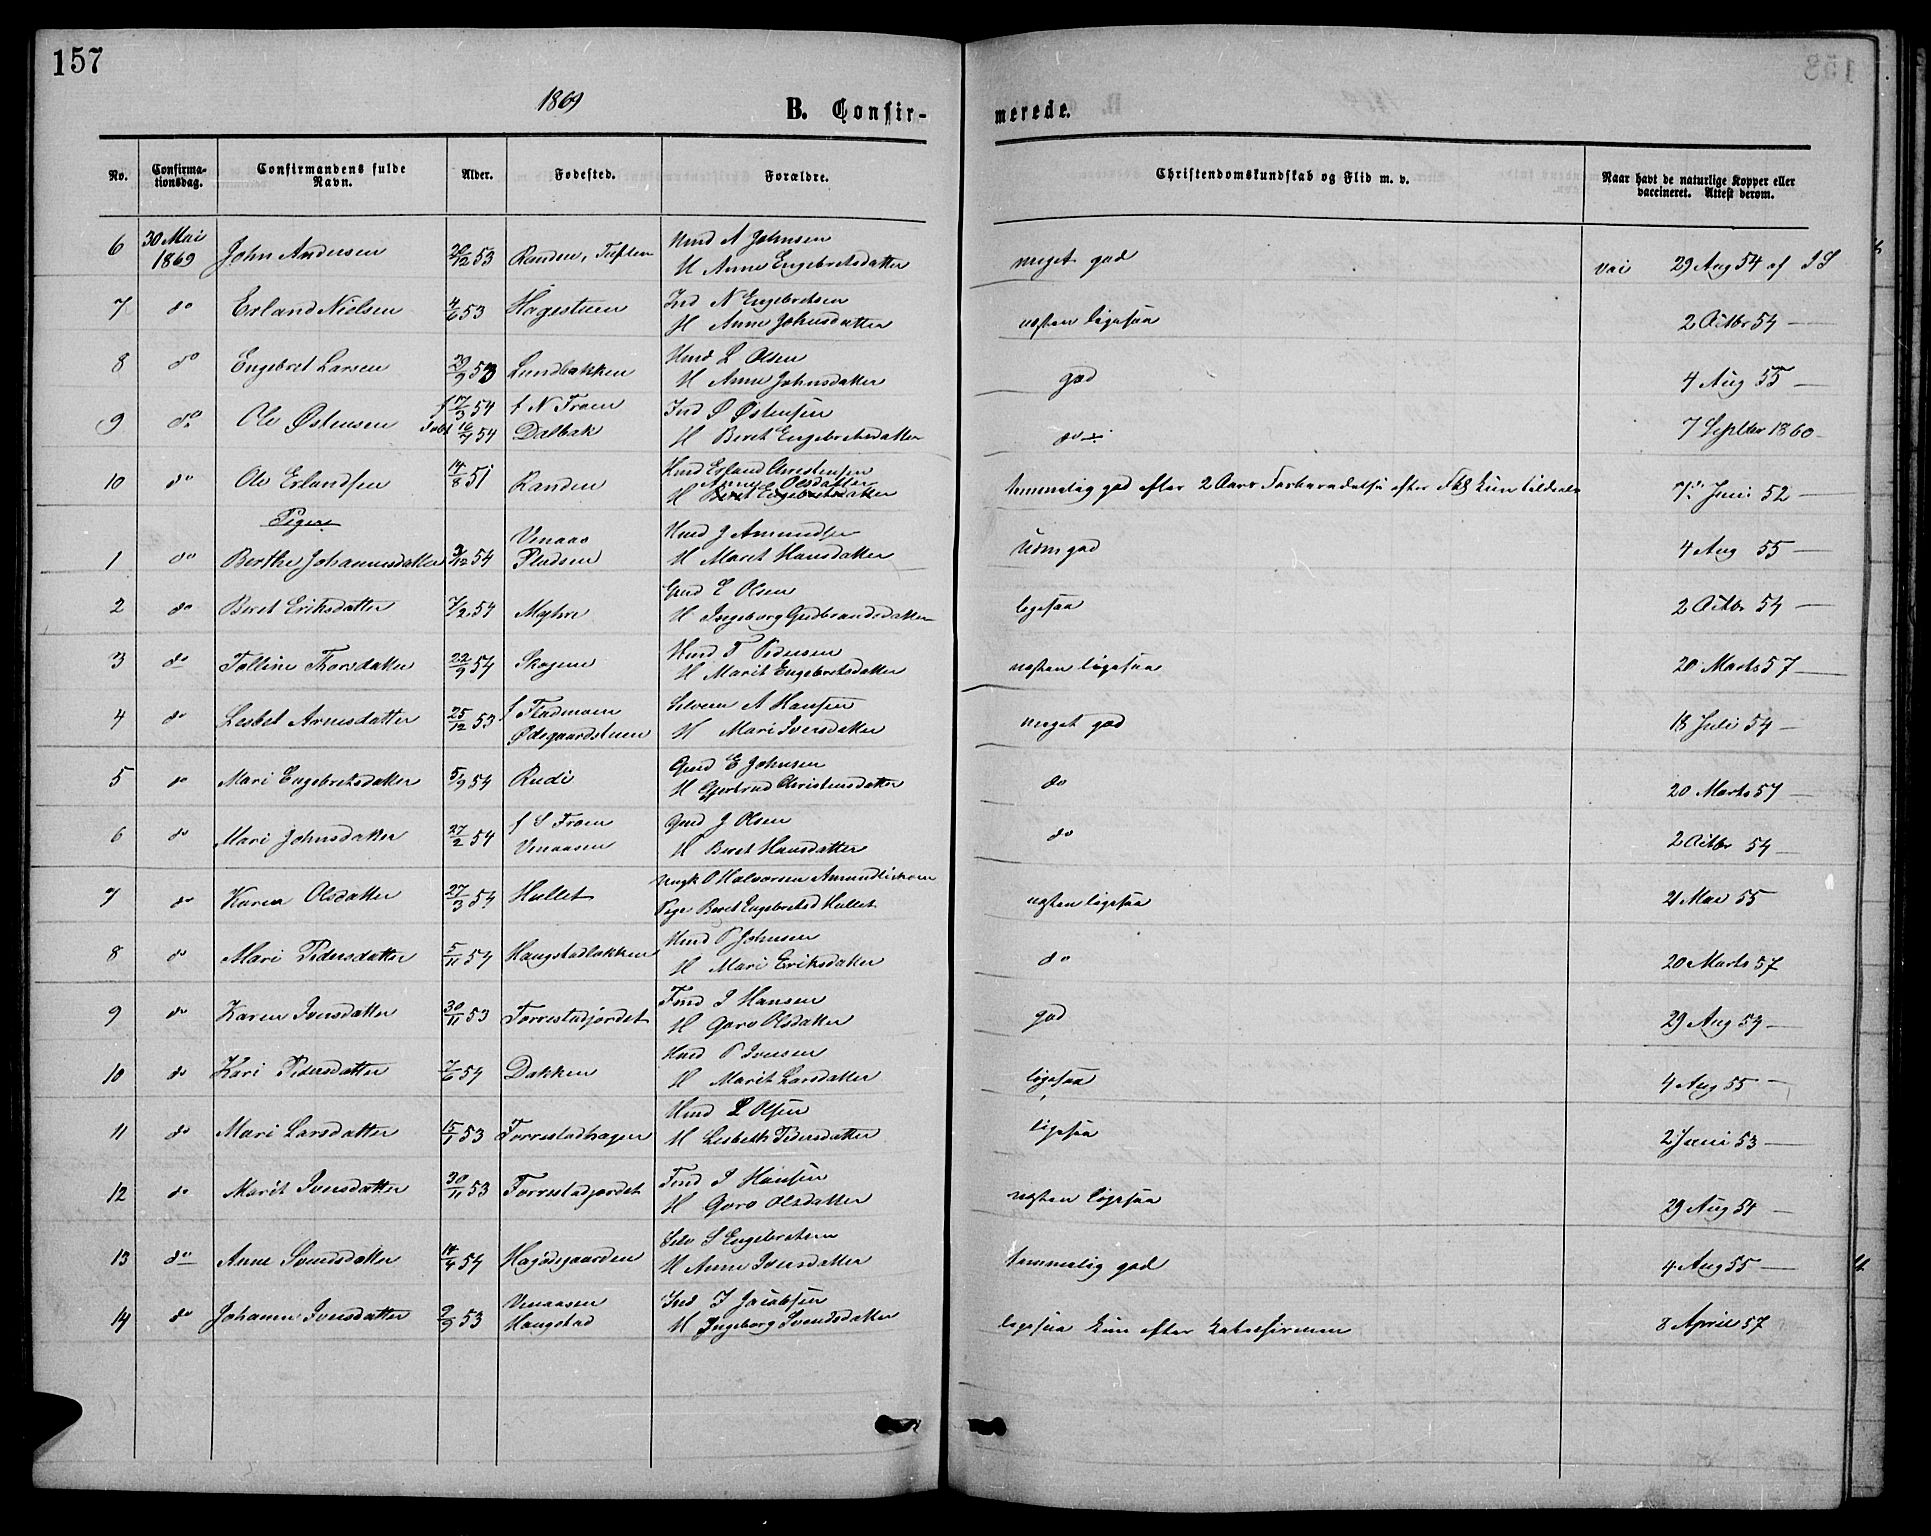 157
158
1869
B. Confir-
merede.
No.
Confirma-
tionsdag.
Confirmandens fulde
Navn.
Alder.
Fødested.
Forældre.
Christendomskundskab og Flid m. v.
Naar havt de naturlige Kopper eller
vaccineret. Attest derom.
6 30 Mai 1869 John Andersen 53 Randen, Huusmd A Johnsen
H Anne Engebretsdatter meget god 29 Aug 54 af
7 do Erland Nielsen 4/6 53 Hagestuen Ind N Engebretsen
H Anne Johnsdatter næsten ligesaa 2 Octbr 54 —
8 do Engebret Larsen 53 Lundbakken Hmd L Olsen
H Anne Johnsdatter god 4 Aug 55 —
9 do Ole Østensen f 17/3 54 f N Fron
16/7 54 Dalbak Ind Østensen
H Beret Engebretsdatter do 7 Septbr 1860
10 do Ole Erlandsen 14/8 51 Randen Hmd Erland Christensen
Anne Olsdatter
H Beret Engebretsdatter temmelig god efter 2 Aars Forberedelse efter kun Juni 52 —
Piger
1 do Berthe Johannesdatter 54 Venaas
Pladsen Hmd J Amundsen
H Maret Hansdatter god 4 Aug 55 —
2 do Beret Eriksdatter 7/2 54 Myhre Gmd E Olsen
H Ingeborg Gudbrandsdatter ligesaa 2 Octbr 54 —
3 do Thorsdatter 22/9 54 Skogen Hmd T Pedersen
H Marit Engebretsdatter næsten ligesaa 20 Marts 57 —
4 do Lesbet Arnesdatter 25/12 53 f Fladmoen
Ødegaardstuen A Hansen
H Mari Iversdatter meget god 18 Juli 54 —
5 do Mari Engebretsdatter 5/9 54 Rudi Gmd E Johnsen
H Gjertrud Christensdatter do 20 Marts 57 —
6 do Mari Johnsdatter 27/2 54 f S Fron
Venaasen Gmd J Olsen
H Beret Hansdatter do 2 Octbr 54 —
7 do Karen Olsdatter 27/3 54 Hullet Ungk O Halvorsen
Pige Beret Engebretsd Hullet næsten ligesaa 21 Mai 55
8 do Mari Pedersdatter 5/11 54 Haugstadbakken Hmd P Johnsen
H Mari Eriksdatter do 20 Marts 57
9 do Karen Iversdatter 30/11 53 Forrestadjordet Ind I Hansen
H Goro Olsdatter god 29 Aug 54 —
10 do Kari Pedersdatter 7/6 54 Bakken Hmd P Iversen
H Marit Larsdatter ligesaa 4 Aug 55 —
11 do Mari Larsdatter 15/1 53 Forrestadhagen Hmd L Olsen
H Lisbeth Pedersdatter ligesaa 2 Juni 53 —
12 do Marit Iversdatter 30/11 53 Forrestadjordet Ind I Hansen
H Goro Olsdatter næsten ligesaa 29 Aug 54 —
13 do Anne Svendsdatter 54 Hagødegaarden S Engebretsen
H Anne Iversdatter temmelig god 4 Aug 55 —
14 do Johanne Iversdatter 2/9 53 Venaasen
Haugstad Ind I Jacobsen
H Ingeborg Svendsdatter ligesaa kun efter 8 April 57